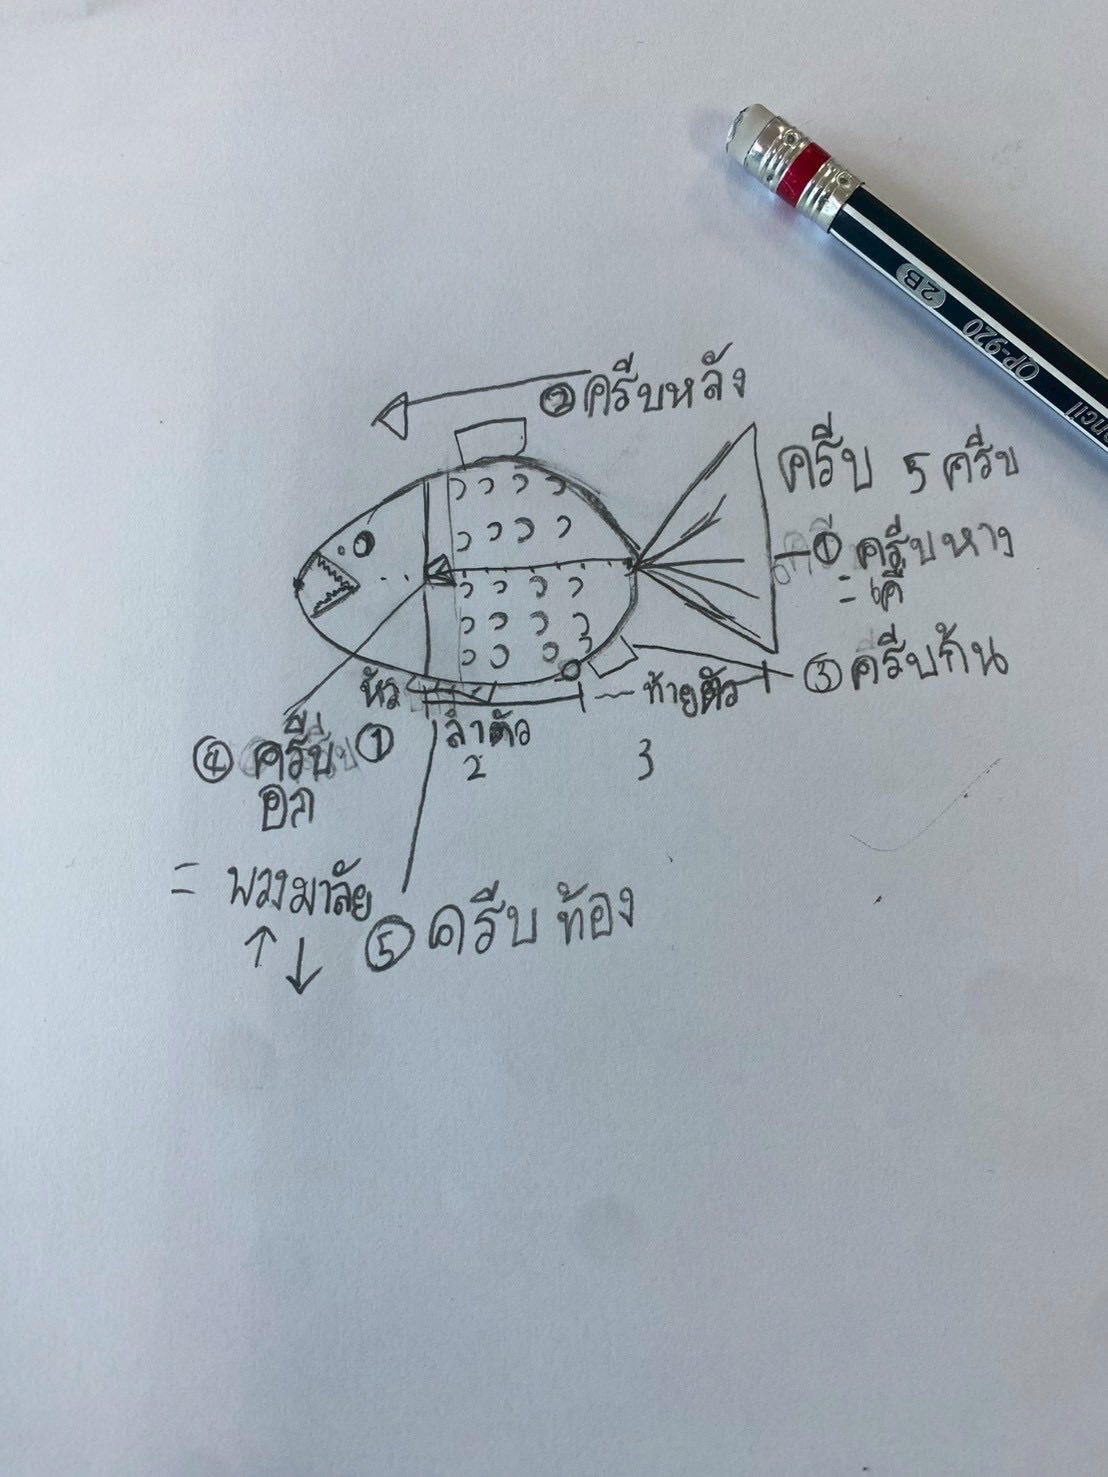 ② ครีบหลัง
ครีบ 5 ครีบ
① ครีบหาง
③ ครีบก้น
หัว
①
ลำตัว
2
ท้ายตัว
3
④ ครีบ
อก
= พวงมาลัย
↑ ↓
⑤ ครีบ ท้อง
2B
OP-920